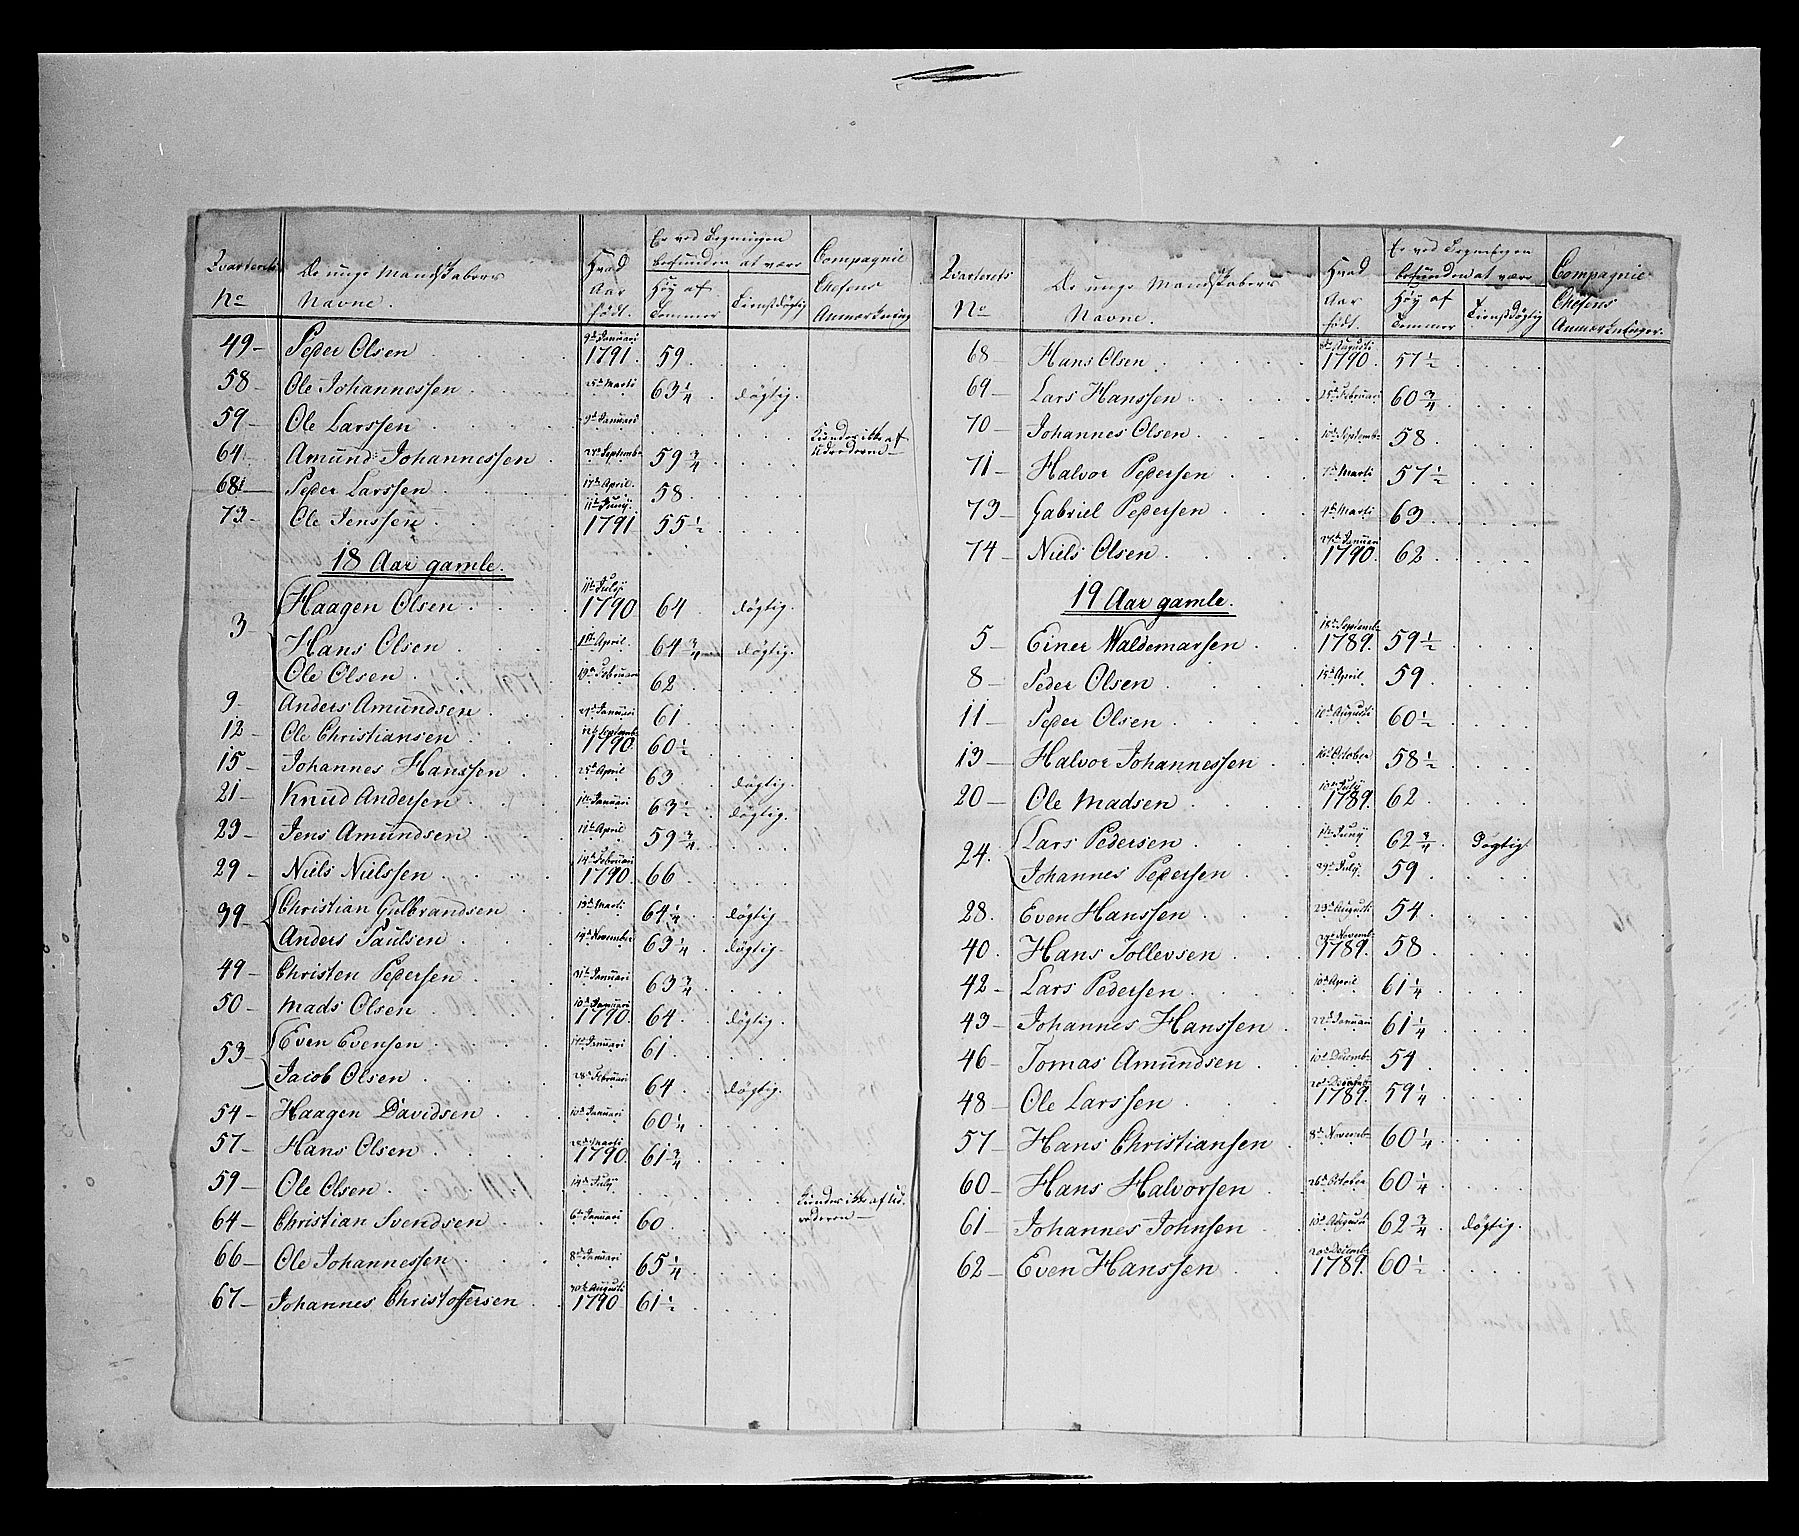 Qvarterets No
De unge Mandskabers Navne.
Hvad Aar født.
Er ved Tegningen befunden at være
Høy af Tommer
Tienstdøgtig
Compagnie Chefens Anmærkning
49 Peder Olsen 9de Januari 1791. 59.
58 Ole Johannessen 25de Marti 63 1/4 døgtig.
59 Ole Larssen 9de Januari
64 Amund Johannessen 24de Septembr 59 3/4 Kiender ikke af Udrederne
68 Peder Larssen 17de April 58.
73 Ole Jenssen 11te Junij 1791 55 1/2
18 Aar gamle.
3 Haagen Olsen 11te Julij 1790 64 døgtig.
Hans Olsen 1ste April 64 3/4 døgtig.
Ole Olsen 19de Februari 62
9 Anders Amundsen 24de Januari 61
12 Ole Christiansen 12te Septembr 1790. 60 1/2
15 Johannes Hanssen 25de April 63 døgtig.
21 Knud Andersen 1ste Januari 63 1/2 døgtig.
23 Jens Amundsen 12te April 59 3/4
29 Niels Nielssen 14de Februari 1790 66
39 Christian Gulbrandsen 13de Marti 64 1/4 døgtig
Anders Paulsen 14de November 63 1/4 døgtig
49 Christen Pedersen 31te Januari 63 3/4
50 Mads Olsen 10de Januari 1790. 64 døgtig.
53 Even Evensen 17de Januari 61
Jacob Olsen 28de Februari 64 døgtig.
54 Haagen Davidsen 10de Januari 60 1/4
57 Hans Olsen 28de Marti 1790. 61 3/4
59 Ole Olsen 14de Julij Kiender ikke af Udrederne
64 Christian Svendsen 6te Januari 60
66 Ole Johannessen 8de Januari 65 1/4
67 Johannes Christoffersen 30te Augusti 1790 61 1/2
Qvarterets No
De unge Mandskabers Navne.
Hvad Aar født.
Er ved Tegningen befunden at være
Høy af Tommer
Tienstdøgtig
Compagnie Chefens Anmærkninger.
68 Hans Olsen Augusti 1790 57 1/2
69 Lars Hanssen 25de Februari 60 3/4
70 Johannes Olsen 10de Septembr 58
71 Halvor Pedersen 7de Marti 57 1/2
73 Gabriel Pedersen 4de Marti 63
74 Niels Olsen 27de Januari 1790. 62
19 Aar gamle.
5 Einer Waldemarsen 18de Septembr 1789. 59 1/2
8 Peder Olsen 15de April 59
11 Peder Olsen 10de Augusti 60 1/2
13 Halvor Johannessen 16de October 58 1/2
20 Ole Madsen 10de Julij 1789. 62
24. Lars Pedersen 1ste Junij 62 3/4 Døgtig.
Johannes Pedersen 29de Julij 59
28. Even Hanssen 23de Augusti 54
40. Hans Tollevsen 24de Novembr 1789. 58
42 Lars Pedersen 10de April 61 1/4
43 Johannes Hanssen 22de Januari 61 1/4
46 Tomas Amundsen 10de Decembr 54
48 Ole Larssen 1789. 59 1/4
57 Hans Christiansen 8de Novembr 60 1/4
60 Hans Halvorsen 26de October 60 1/4
61 Johannes Johnsen 15de August 62 3/4 døgtig.
62 Even Hanssen 20de Decembr 1789. 60 1/2